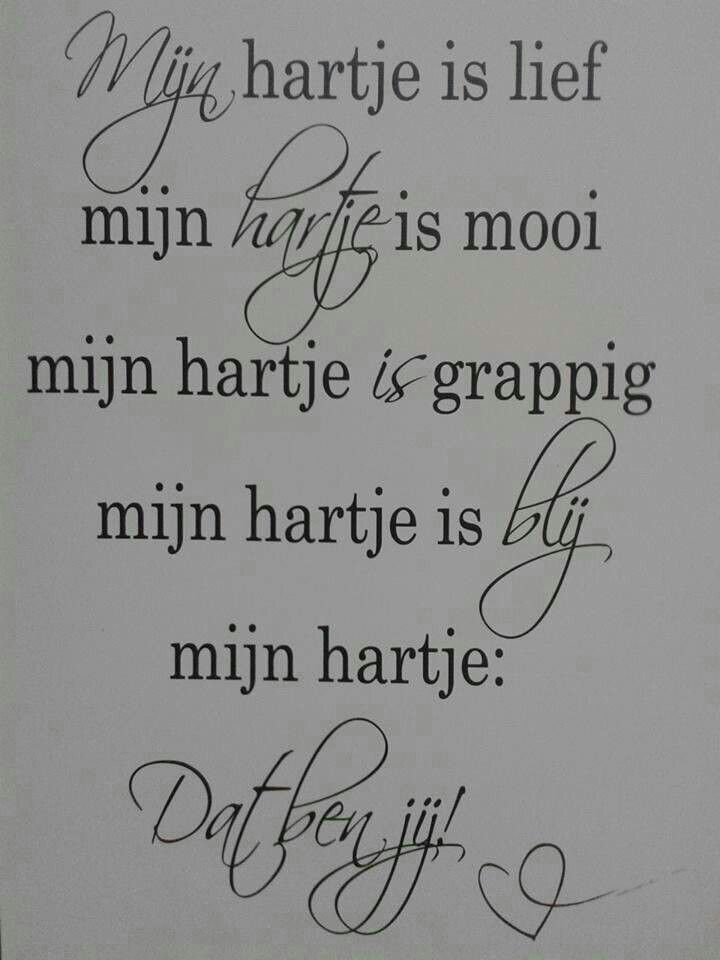 Mijn hartje is lief
mijn hartje is mooi
mijn hartje is grappig
mijn hartje is blij
mijn hartje:
Dat ben jij!